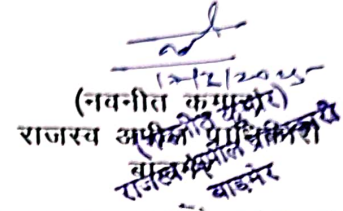 12/2/2025
(नवनीत कुमार)
राजस्व अपील प्राधिकारी
बाड़मेर
राजस्व अपील प्राधिकारी
बाड़मेर